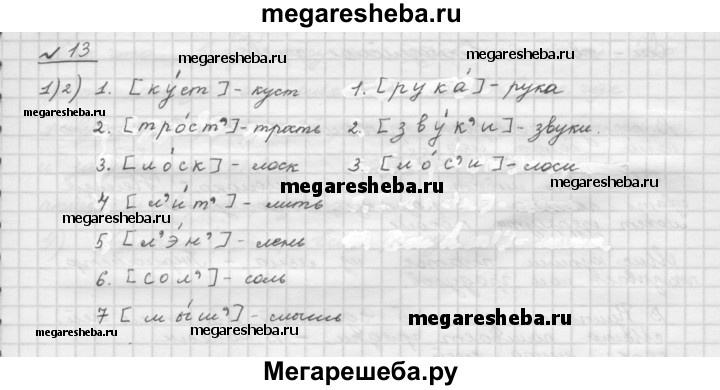 megaresheba.ru
№ 13
megaresheba.ru
megaresheba.ru
1)2) 1. [ку́ст] - куст 1. [рука́] - рука
megaresheba.ru
2. [тро́ст’] - трость 2. [зву́к’и] - звуки.
megaresheba.ru
3. [ло́ск] - лоск 3. [ло́с’и] - лоси
megaresheba.ru
4 [л’и́т’] - лить
megaresheba.ru
5 [л’э́н’] - лень
6. [сол’] - соль
7 [мы́ш’] - смышь
megaresheba.ru
megaresheba.ru
megaresheba.ru
Мегарешеба.ру